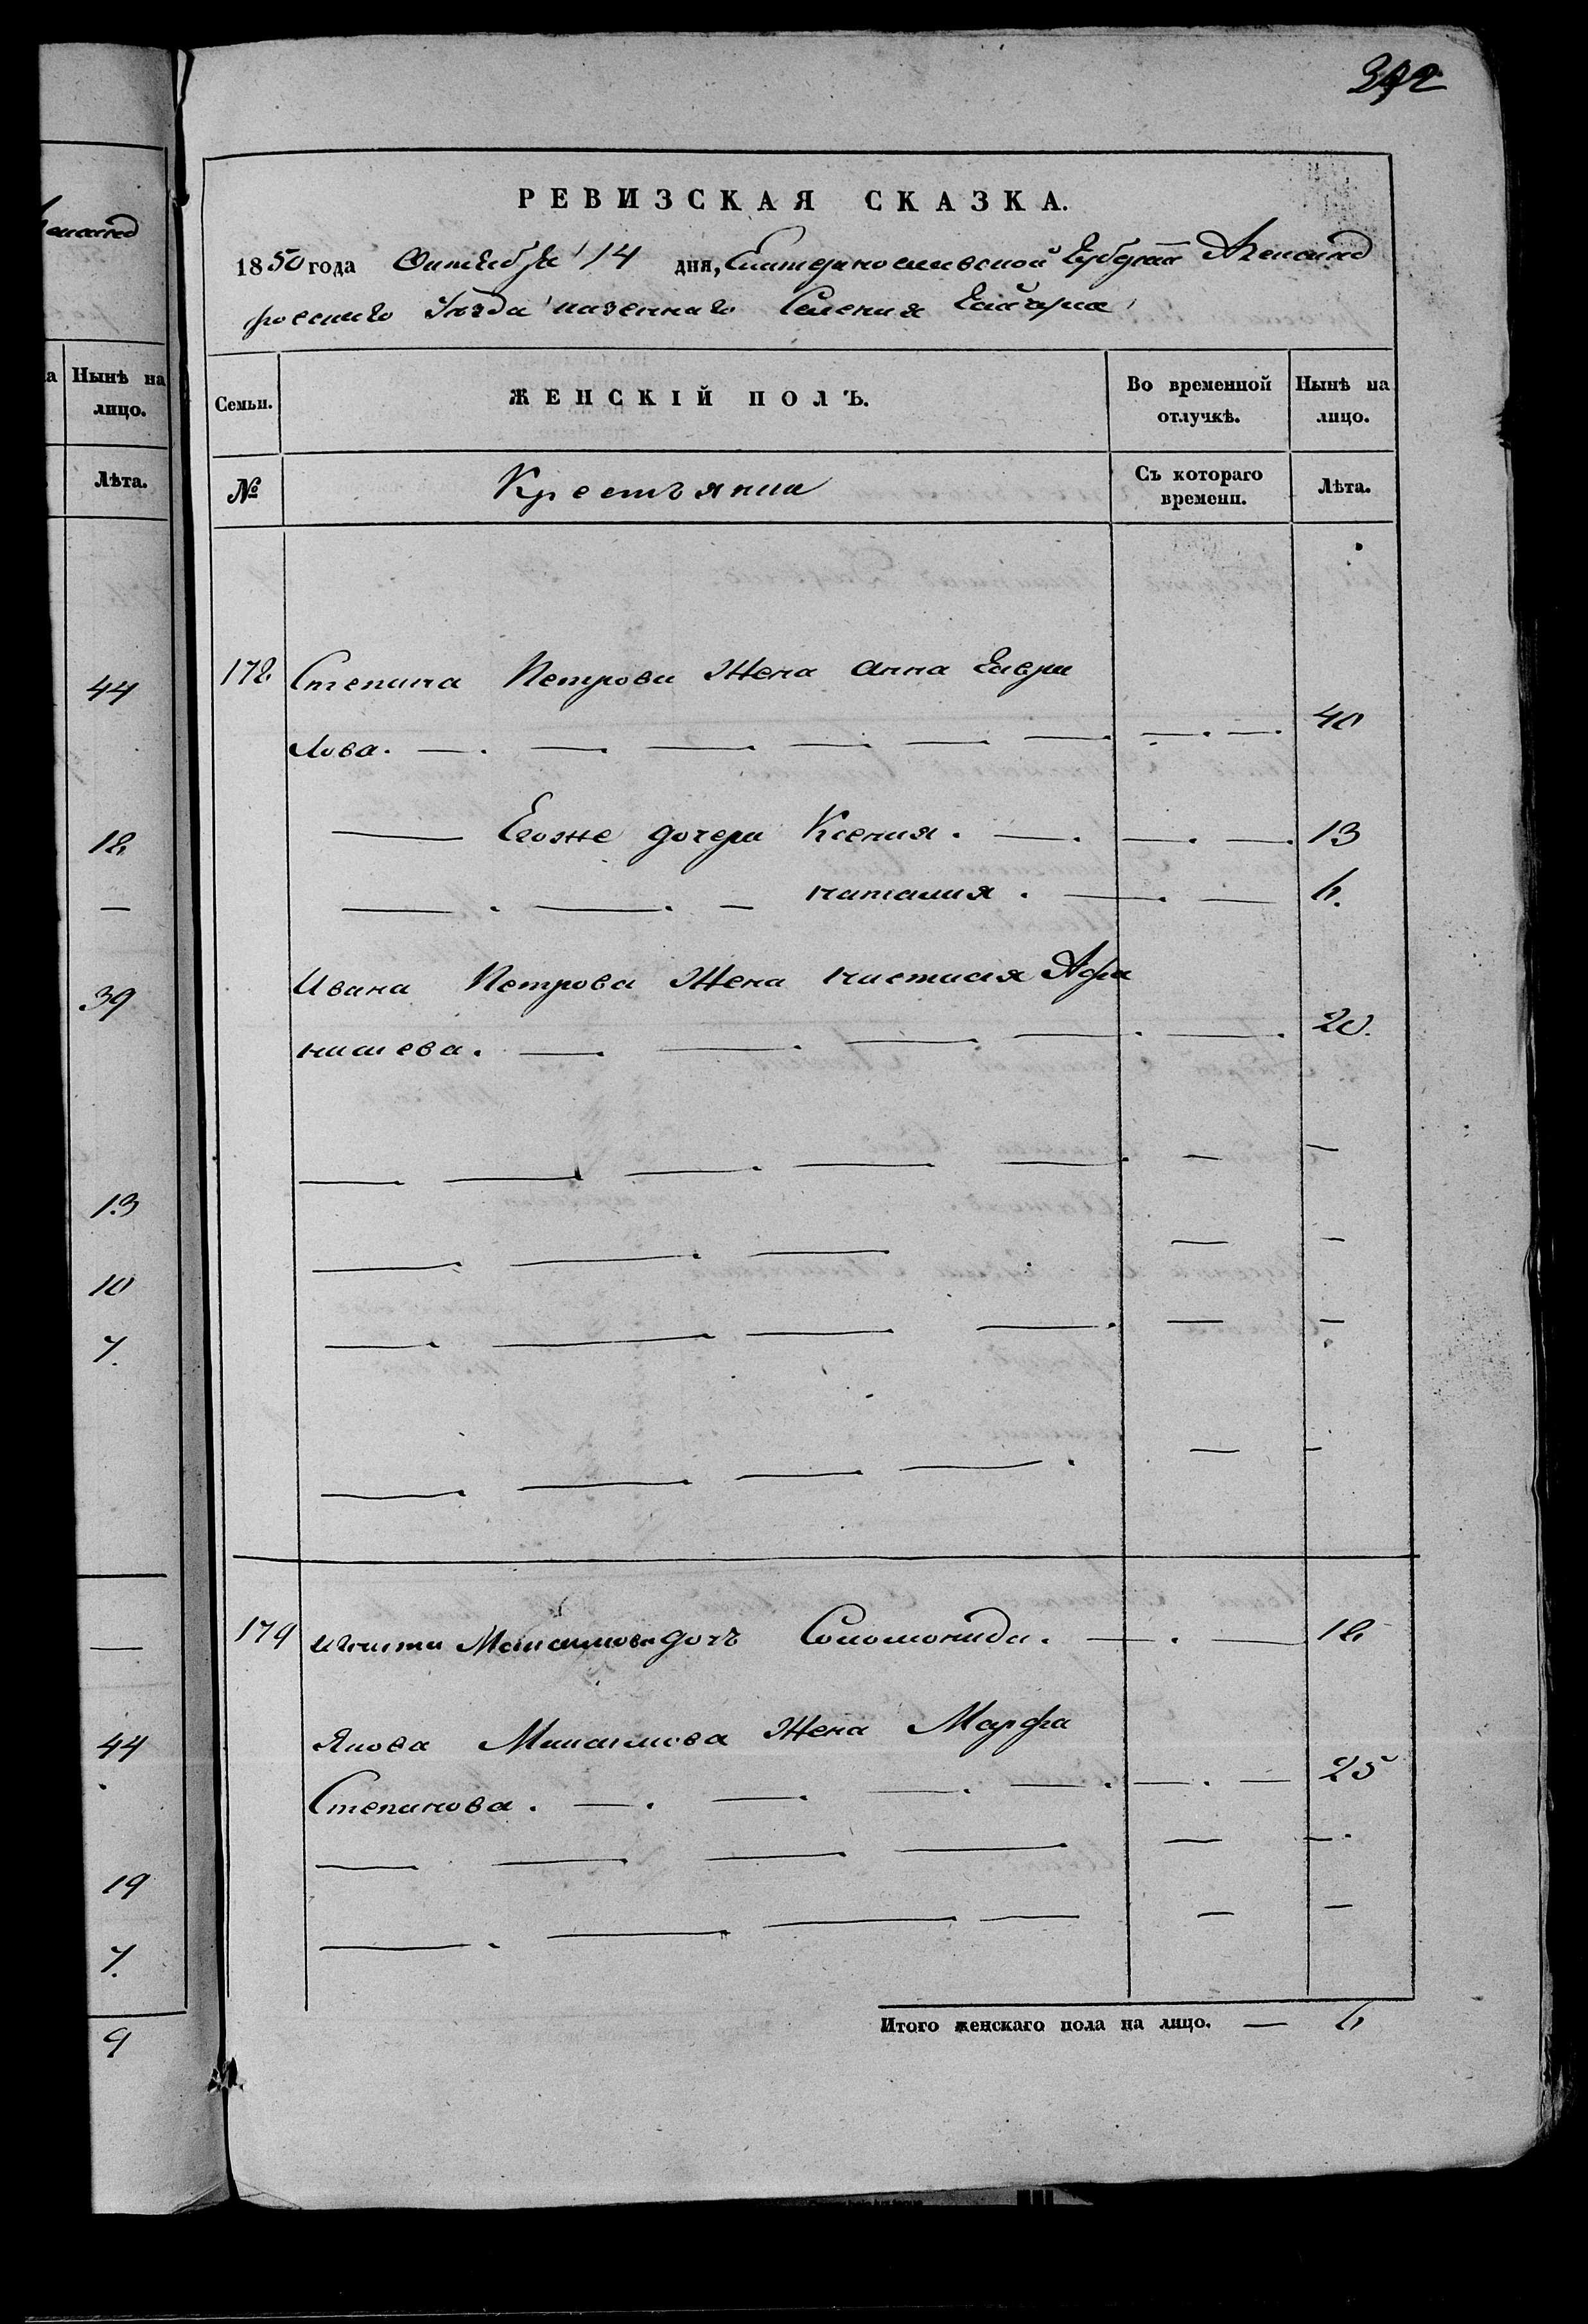 392
РЕВИЗСКАЯ СКАЗКА.
1850 года Октября 14 дня, Екатеринославской Губернии Александ
ровскаго Уѣзда казеннаго Селения Гайчула
Семьи. ЖЕНСКІЙ ПОЛЪ. Во временной отлучкѣ. Нынѣ на лицо.
№ Крестъянки Съ котораго времени. Лѣта.
178 Степана Петрова Жена Анна Гаври
лова. 40
Егоже дочери Ксения. 13
Наталия. 6.
Ивана Петрова Жена Настасия Афа
насиева. 20.
179 Никиты Максимова дочь Соломонида. 18
Якова Максимова Жена Марфа
Степанова. 25
Итого женскаго пола на лицо. — 6
Нынѣ на лицо.
Лѣта.
44
18
—
39
13
10
7.
—
44
19
7.
9